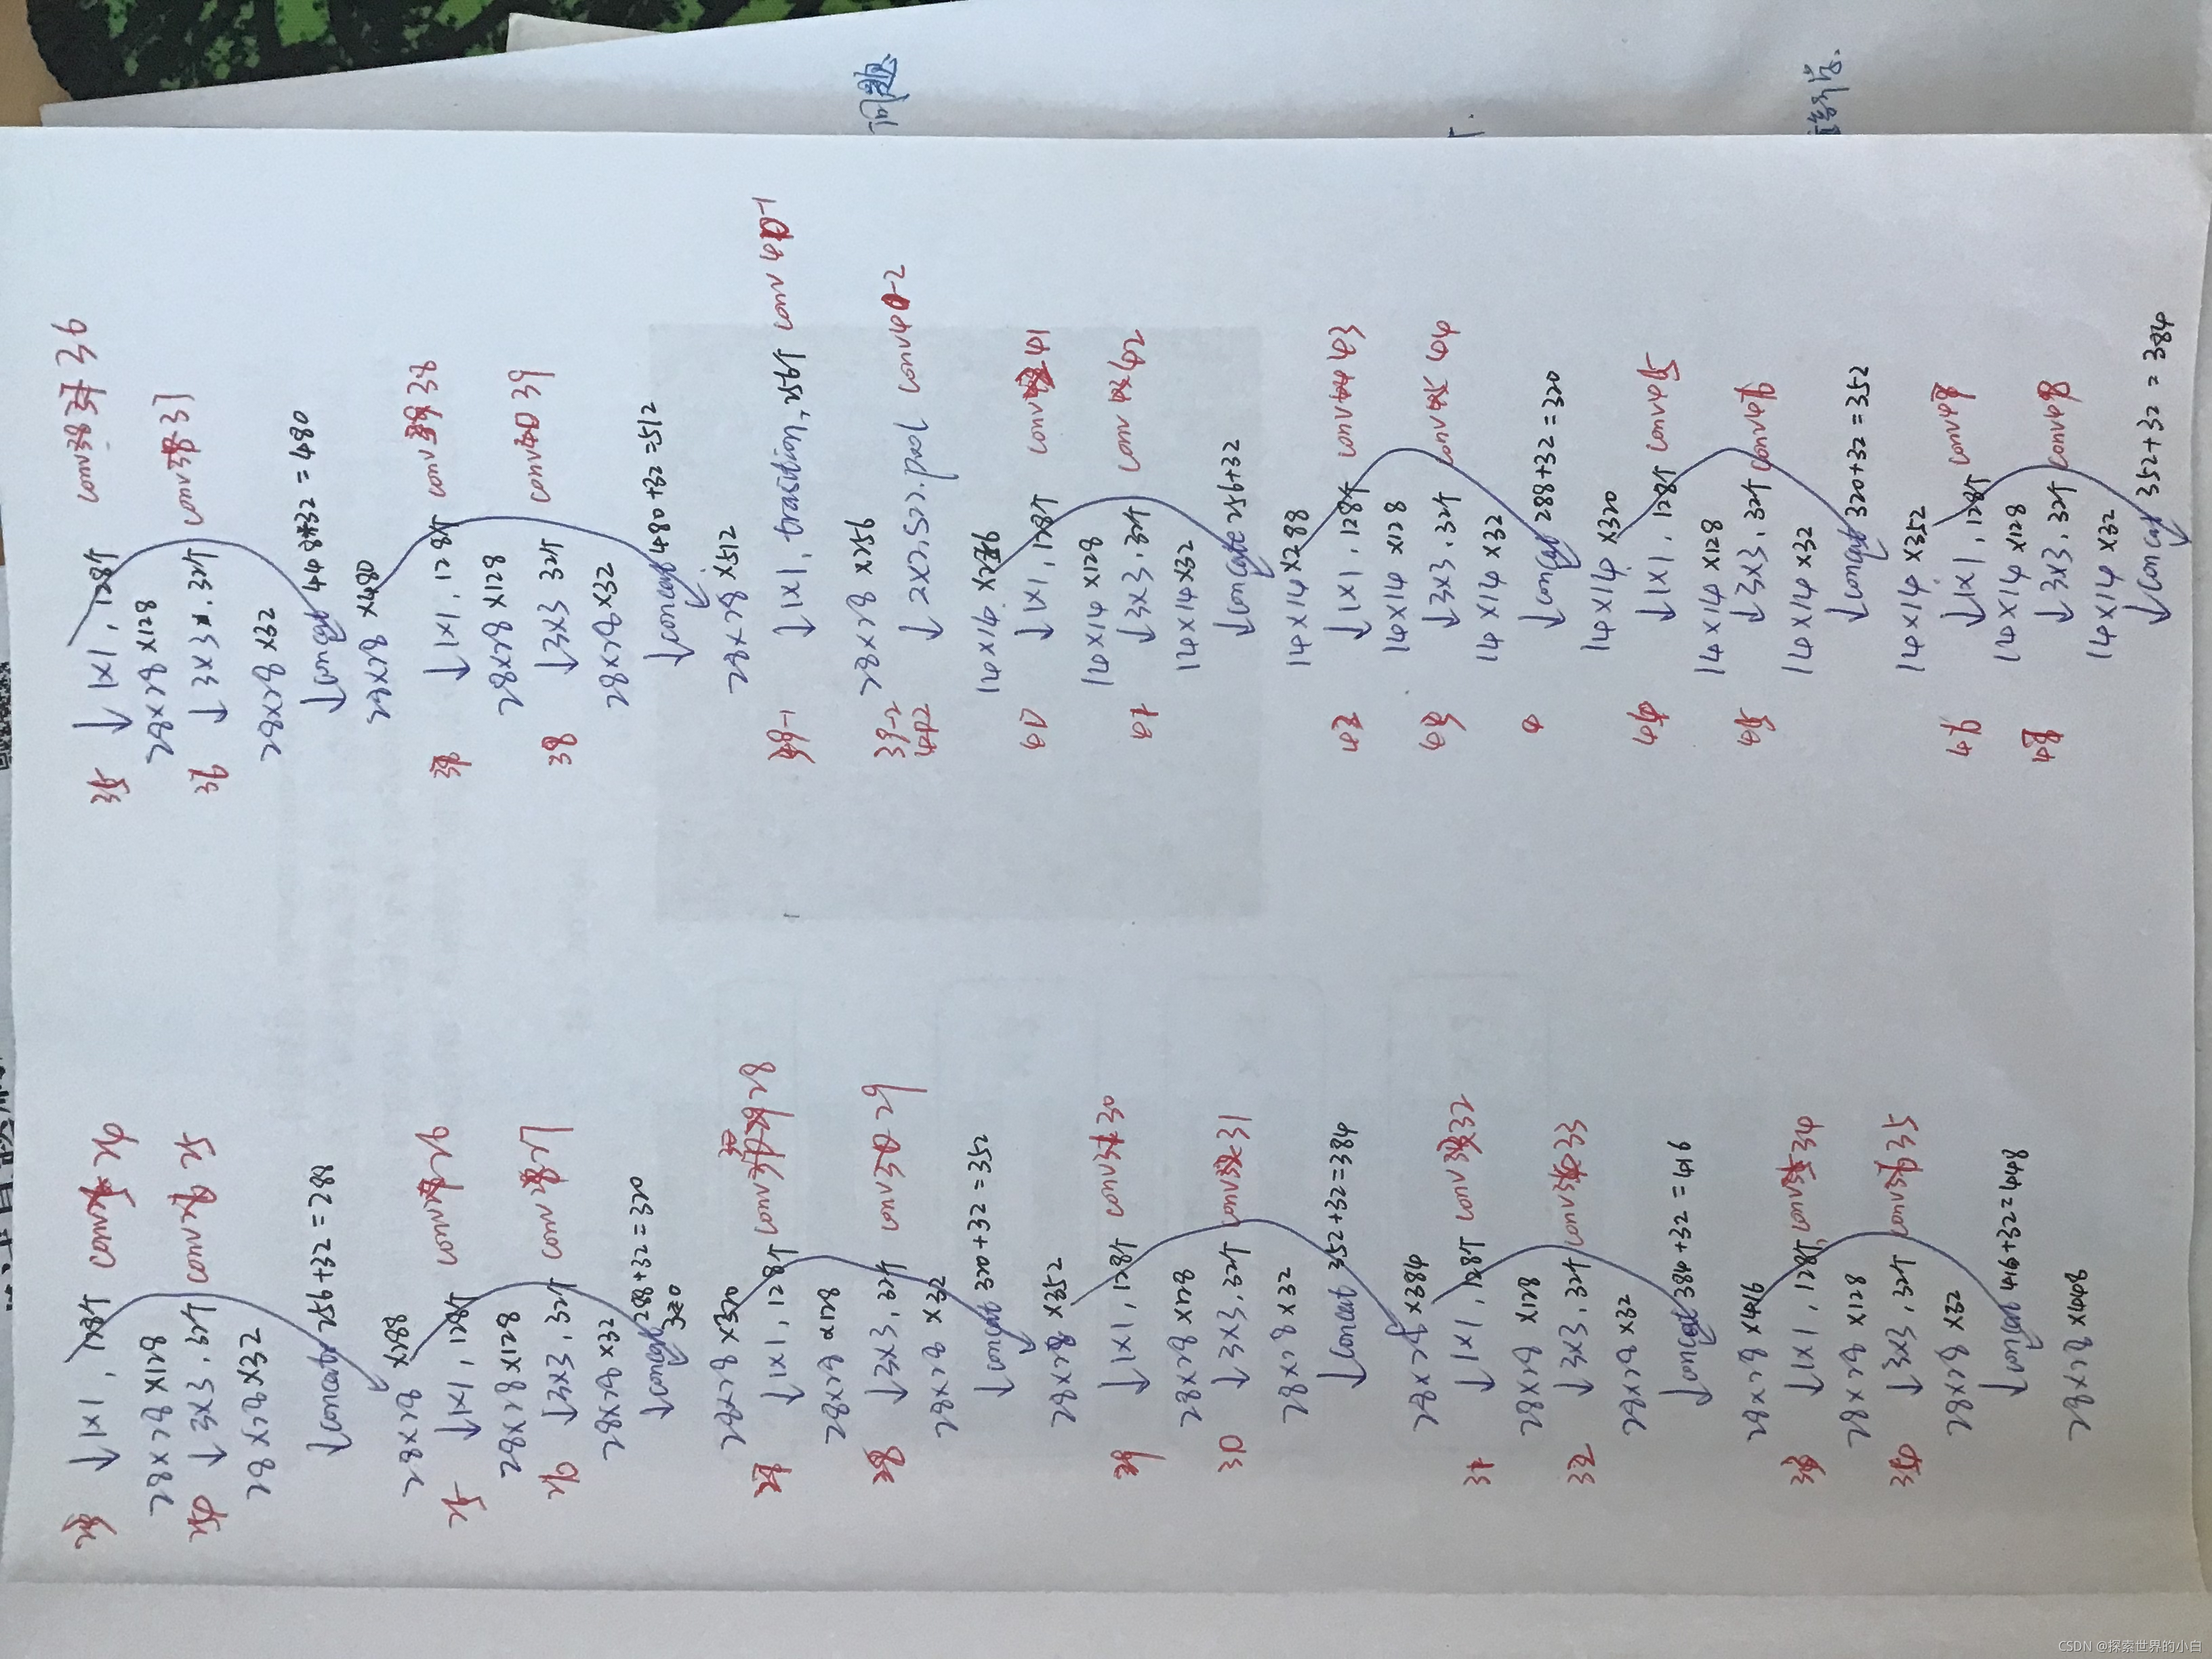 ↓1×1, 128个 conv 24
28×28×128
↓3×3, 32个 conv 25
28×28×32
↓concate 256+32=288
28×28×288
25 ↓1×1, 128个 conv 26
28×28×128
26 ↓3×3, 32个 conv 27
28×28×32
↓concat 288+32=320
320
28×28×320
↓1×1, 128个 conv 28
28×28×128
28 ↓3×3, 32个 conv 29
28×28×32
↓concat 320+32=352
28×28×352
29 ↓1×1, 128个 conv 30
28×28×128
30 ↓3×3, 32个 conv 31
28×28×32
↓concat 352+32=384
28×28×384
31 ↓1×1, 128个 conv 32
28×28×128
32 ↓3×3, 32个 conv 33
28×28×32
↓concat 384+32=416
28×28×416
↓1×1, 128个 conv 34
28×28×128
↓3×3, 32个 conv 35
28×28×32
↓concat 416+32=448
28×28×448
35 ↓1×1, 128个 conv 36
28×28×128
36 ↓3×3, 32个 conv 37
28×28×32
↓concat 448+32=480
28×28×480
↓1×1, 128个 conv 38
28×28×128
38 ↓3×3 32个 conv 39
28×28×32
↓concat 480+32=512
28×28×512
39-1 ↓1×1, trasition, 256个 conv 40-1
28×28×256
39-2 ↓2×2, S=2, pool conv 40-2
14×14×256
↓1×1, 128个 conv 41
14×14×128
↓3×3, 32个 conv 42
14×14×32
↓concate 256+32
14×14×288
↓1×1, 128个 conv 43
14×14×128
↓3×3, 32个 conv 44
14×14×32
4 ↓concat 288+32=320
14×14×320
↓1×1, 128个 conv 45
14×14×128
45 ↓3×3, 32个 conv 46
14×14×32
↓concat 320+32=352
14×14×352
46 ↓1×1, 128个 conv 47
14×14×128
↓3×3, 32个 conv 48
14×14×32
↓concat 352+32=384
问题
CSDN @探索世界的小白